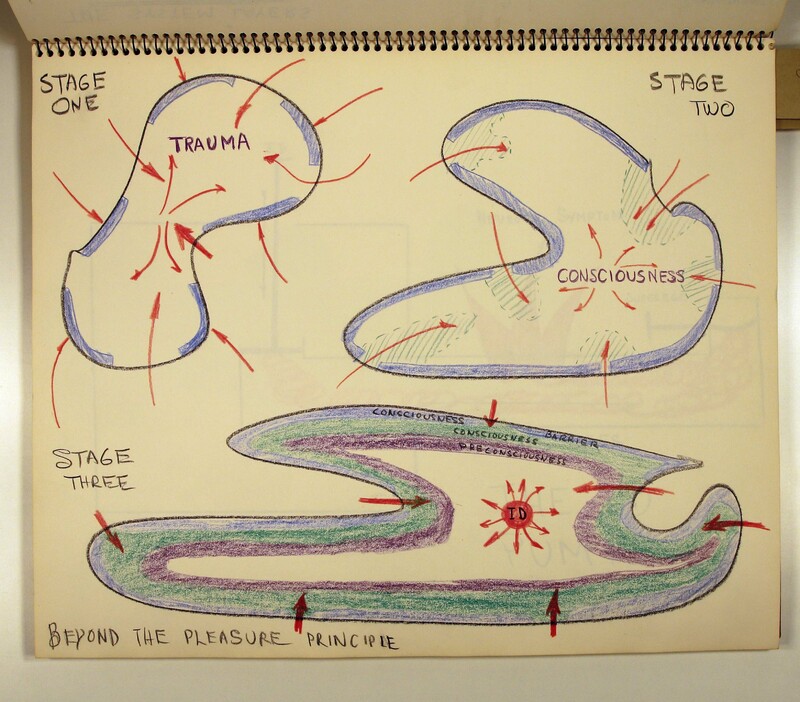 STAGE
ONE
TRAUMA
STAGE
TWO
CONSCIOUSNESS
STAGE
THREE
CONSCIOUSNESS BARRIER
CONSCIOUSNESS
PRECONSCIOUSNESS
ID
BEYOND THE PLEASURE PRINCIPLE